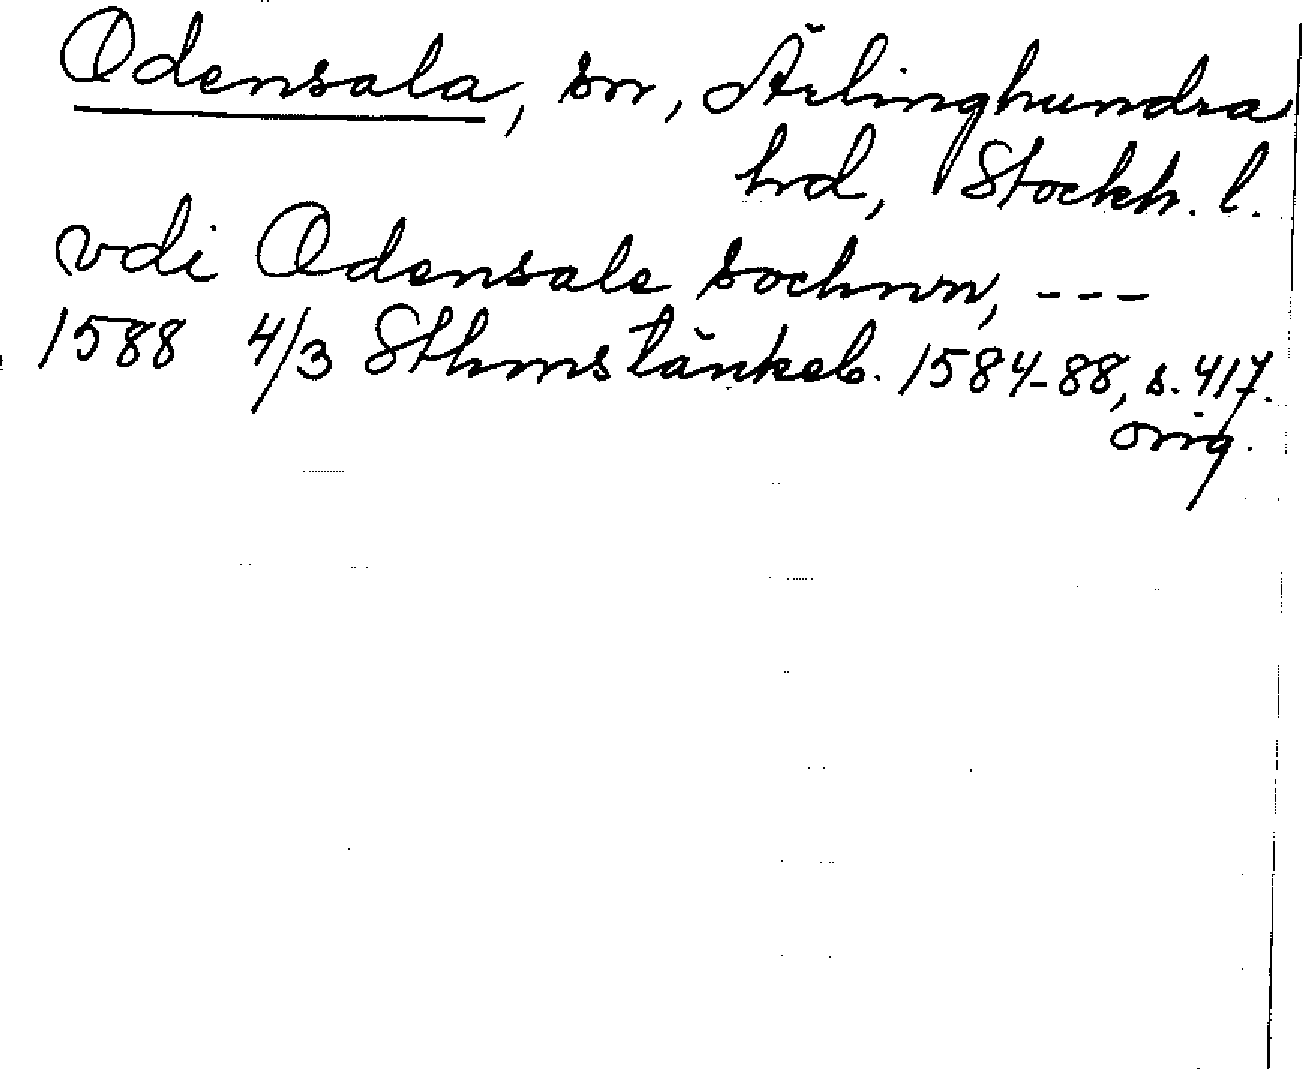 Odensala, sn, Ärlinghundra
hrd, Stockh. l.
vdi Odensale sochnn, ---
1588 4/3 Sthmstänkeb. 1584-88, s. 417.
orig.